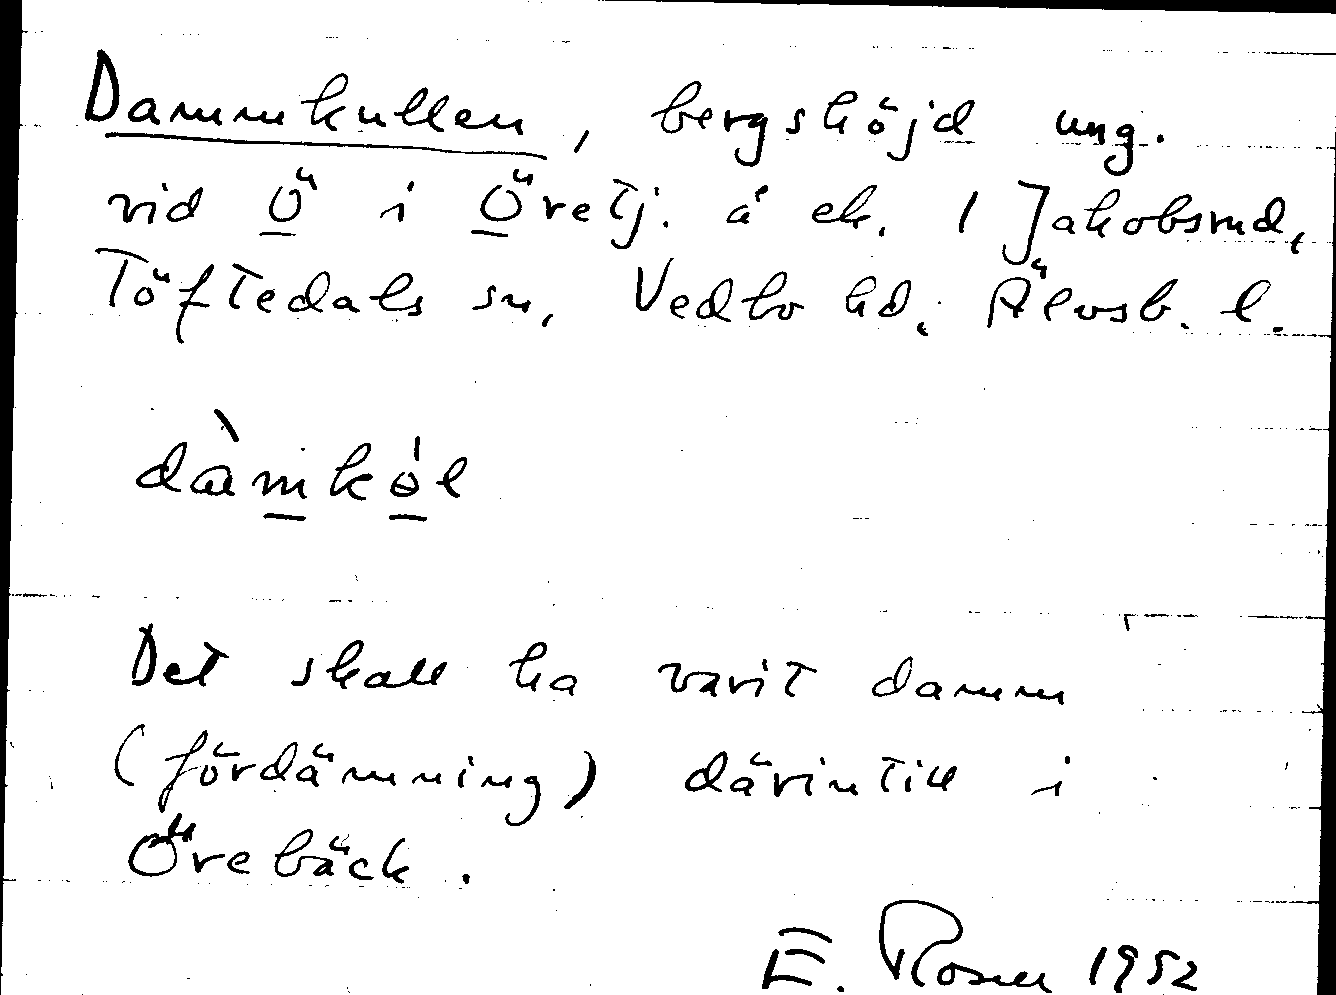 Dammkullen, bergshöjd ung.
vid Ö i Öretj. å ek. 1 Jakobsrud,
Töftedals sn, Vedbo hd, Älvsb. l.
dàmkól
Det skall ha varit damm
(fördämning) därintill i
Örebäck.
E. Rosell 1952